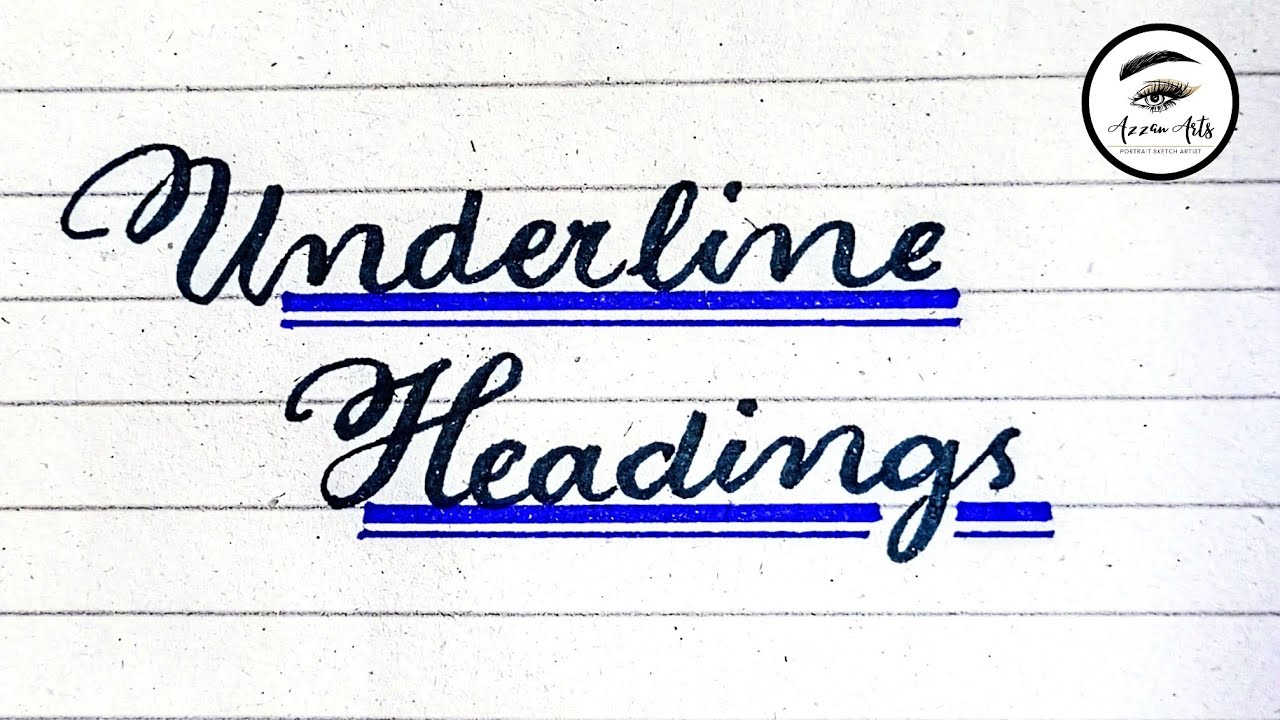 Underline
Headings
Azzan Arts
PORTRAIT SKETCH ARTIST